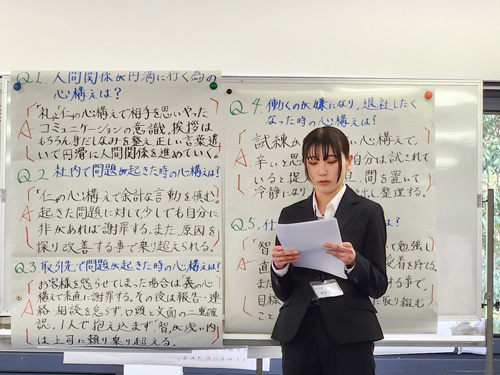 Q1. 人間関係が円満に行く為の
心構えは？
A「礼」と「仁」の心構えで相手を思いやった
コミュニケーションの意識。挨拶は
もちろん身だしなみを整え正しい言葉遣
いで円滑に人間関係を進めていく。
Q2. 社内で問題が起きた時の心構えは？
A「仁」の心構えで余計な言動を慎む。
起きた問題に対して少しでも自分に
非があれば謝罪する。また、原因を
探り改善する事で乗り超えられる。
Q3 取引先で問題が起きた時の心構えは？
A お客様を怒らせてしまった場合は義の心
構えで素直に謝罪する。その後は報告・連
絡・相談を怠らず、口頭と文面の二重確
認。1人で抱え込まず「智」が浅い内
は上司に頼り乗り超える。
Q4. 働くのが嫌になり、退社したく
なった時の心構えは？
A 試練か 心構えで、
辛い 自分は試されて
いると 間を置いて
冷静に 出し、整理する。
Q5. 仕 は？
A「智 勉強し
直 を持てる。
ま する事で、
目標 に取り組む
こと